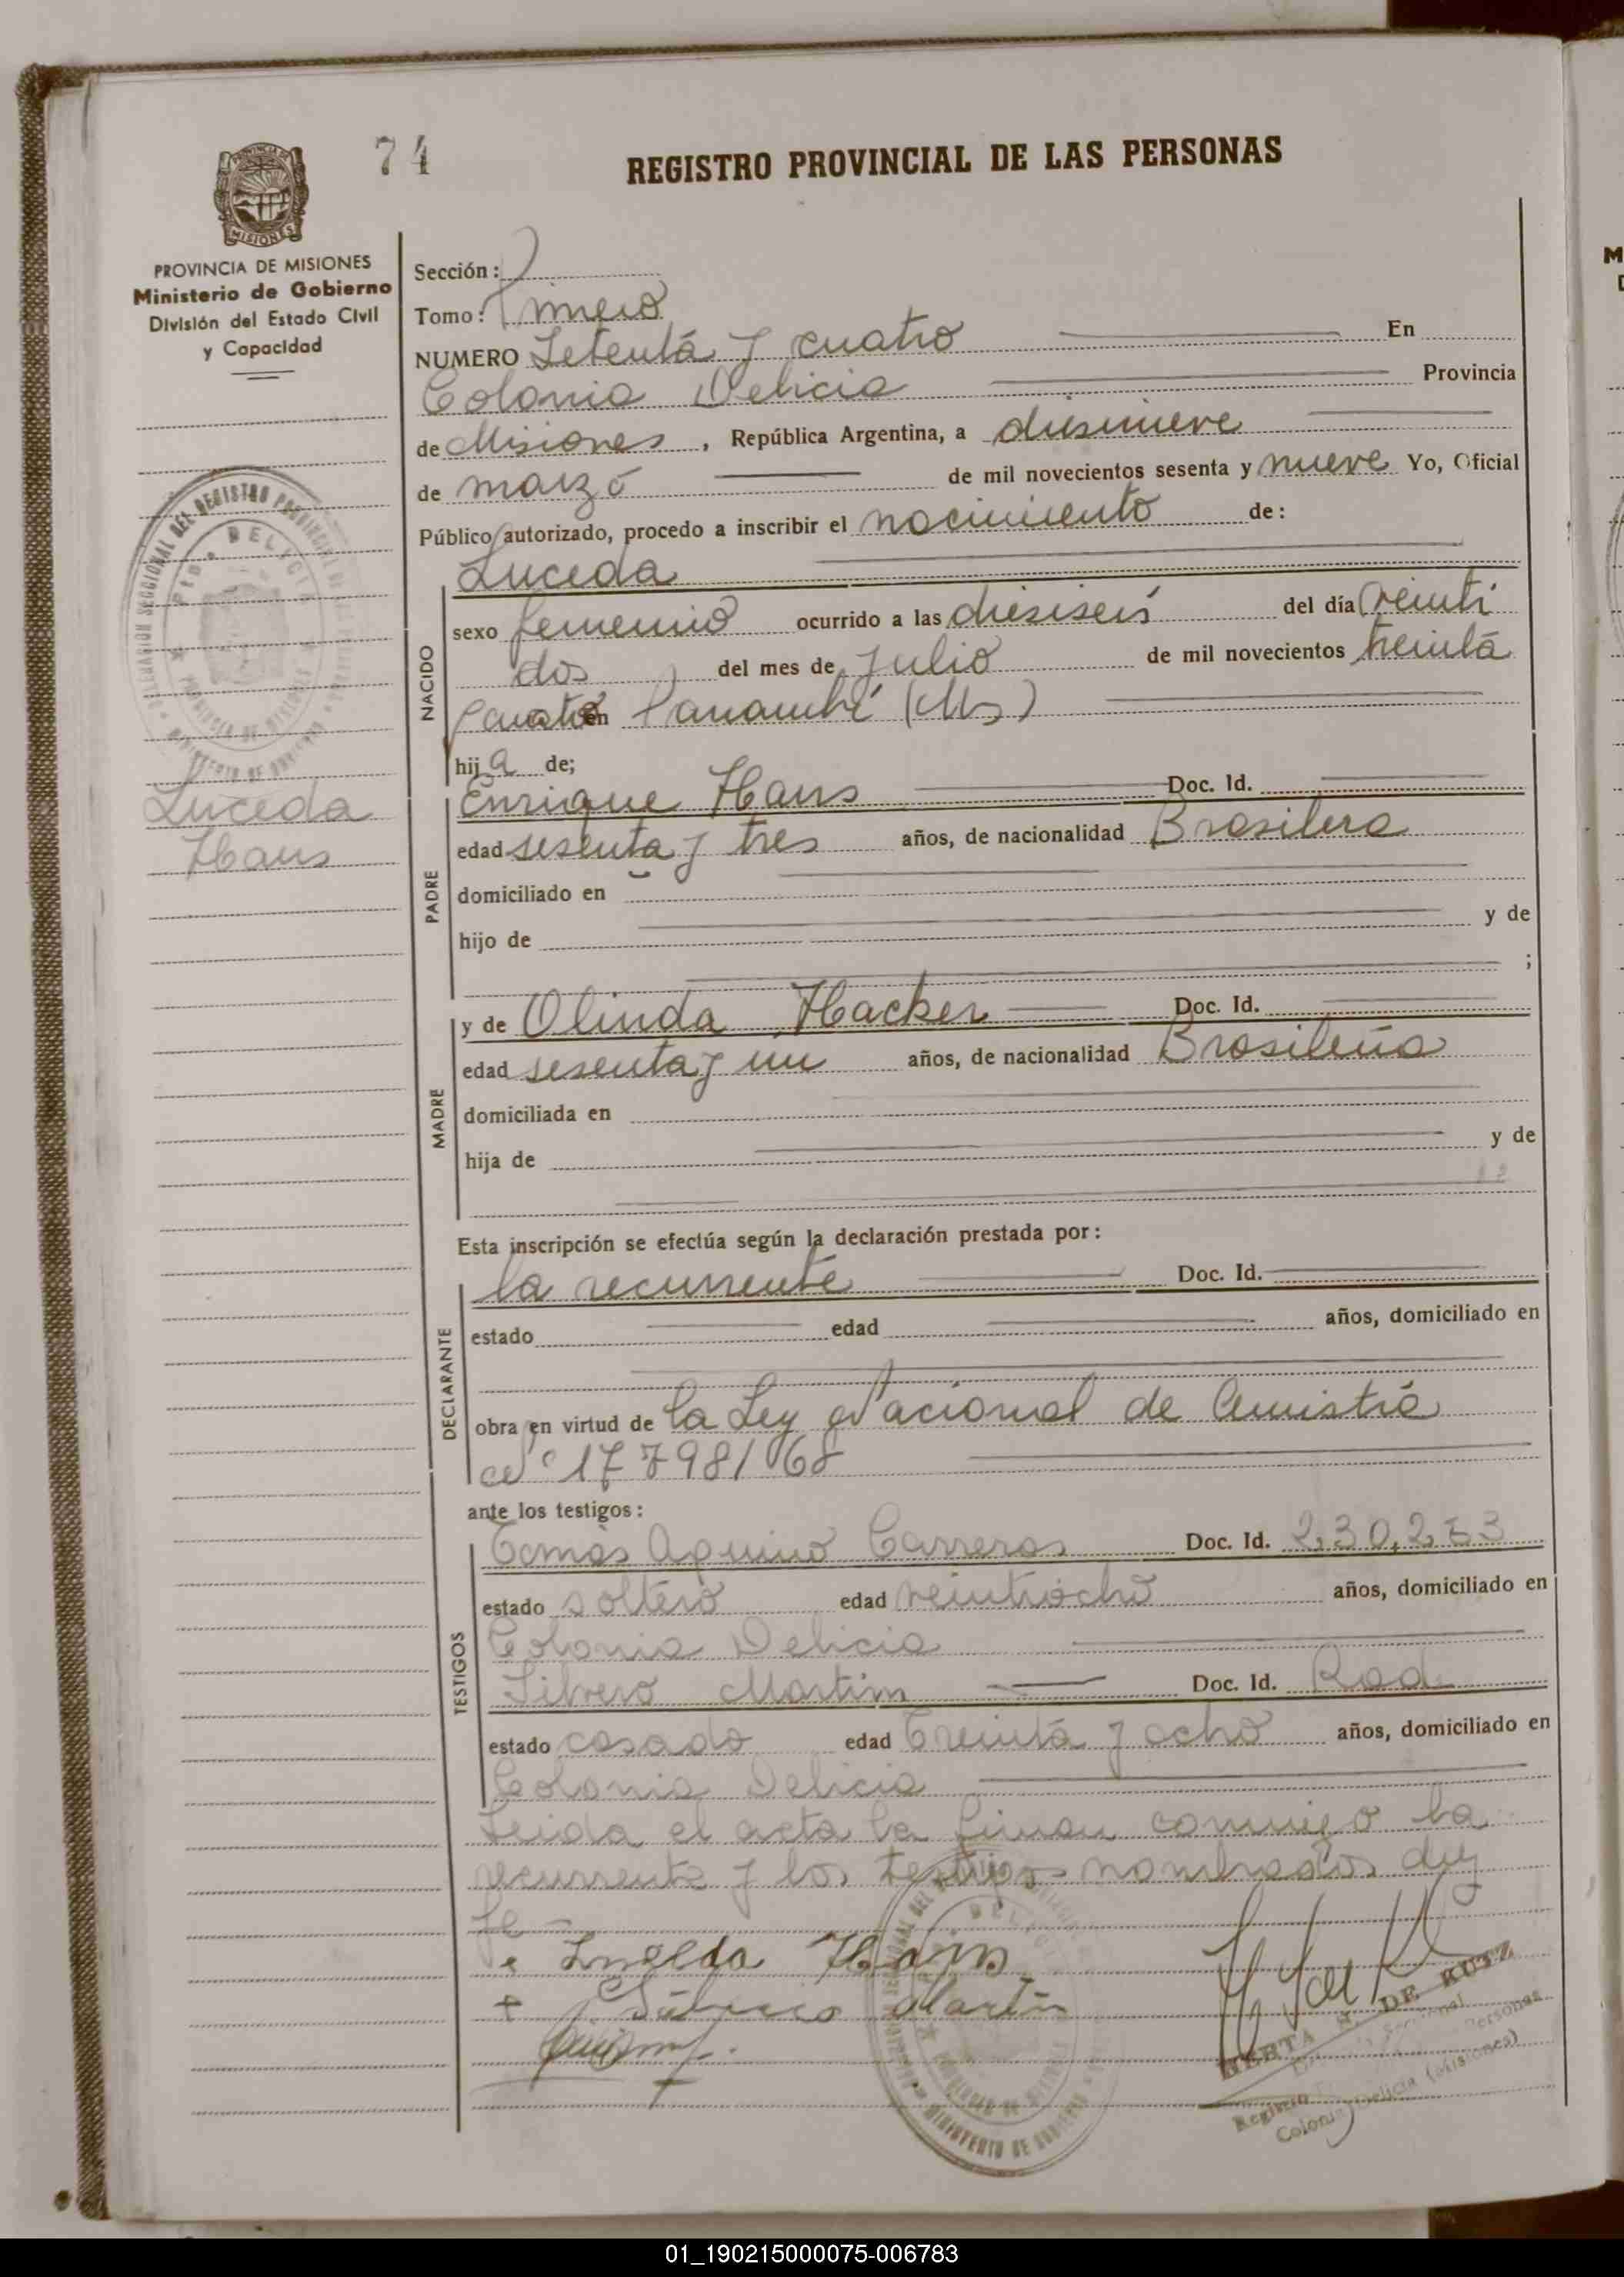 74
REGISTRO PROVINCIAL DE LAS PERSONAS
MISIONES
PROVINCIA DE MISIONES
Ministerio de Gobierno
División del Estado Civil
y Capacidad
Sección:
Tomo: Primero
NUMERO Setenta y cuatro En
Colonia Delicia Provincia
de Misiones, República Argentina, a diesinueve
de marzo de mil novecientos sesenta y nueve Yo, Oficial
Público autorizado, procedo a inscribir el nacimiento de:
Luceda
NACIDO
sexo femenino ocurrido a las diesiseis del día veinti
dos del mes de Julio de mil novecientos treinta
y cuatro en Panambí (Ms)
hija de;
Luceda
Hans
PADRE
Enrique Hans Doc. Id.
edad sesenta y tres años, de nacionalidad Brasilera
domiciliado en
hijo de y de
;
MADRE
y de Olinda Hacker Doc. Id.
edad sesenta y un años, de nacionalidad Brasileña
domiciliada en
hija de y de
Esta inscripción se efectúa según la declaración prestada por:
DECLARANTE
la recurrente Doc. Id.
estado edad años, domiciliado en
obra en virtud de la Ley Nacional de Amistia
Nº 17798/68
ante los testigos:
TESTIGOS
Tomás Aquino Carreras Doc. Id. 2,30,2
estado soltero edad veintiocho años, domiciliado en
Colonia Delicia
Silverio Martim Doc. Id.
estado casado edad Treinta y ocho años, domiciliado en
Colonia Delicia
Leida el acta la firman conmigo la
recurrente y los testigos nombrados doy
fe
Hans
Martin
HERTA S. DE KUTZ
Registro Personas
Colonia Delicia (Misiones)
01_190215000075-006783